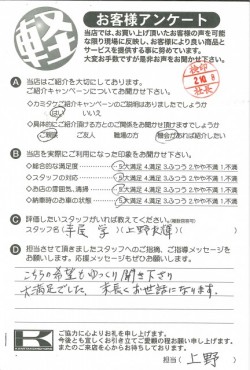 軽
お客様アンケート
当店では、お買い上げ頂いたお客様の声を可能
な限り現場に反映し、お客様により良い商品と
サービスを提供する事に努めています。
大変お手数ですが是非お声をお聞かせ下さい。
検印
2.10.8
社長
A 当店はご紹介を大切にしております。
ご紹介キャンペーンについてお聞かせ下さい。
◇カミタケご紹介キャンペーンがありましたでしょうか
はい いいえ
◇具体的にご紹介頂ける方とのご関係をお聞かせ頂けますでしょうか
ご親族 ご友人 職場の方 機会があれば紹介したい
B 当店を実際にご利用になった印象をお聞かせ下さい。
◇総合的な満足度 5.大満足 4.満足 3.ふつう 2.やや不満 1.不満
◇スタッフの対応 5.大満足 4.満足 3.ふつう 2.やや不満 1.不満
◇お店の雰囲気、清掃 5.大満足 4.満足 3.ふつう 2.やや不満 1.不満
◇納車時のお車の状態 5.大満足 4.満足 3.ふつう 2.やや不満 1.不満
C 評価したいスタッフがいれば教えてください。(複数回答可)
スタッフ名( )(上野 )
D 担当させて頂きましたスタッフへのご指摘、ご指導メッセージを
お願いします。応援メッセージもぜひお願いします。
こちらの希望もゆっくり聞き下さり
大満足でした。末長くお世話になります。
K
ご協力に心よりお礼を申し上げます。
今後とも宜しくお引き立てご愛顧の程お願い申し上げます。
またのご来店を心からお待ちしております。
担当(上野)